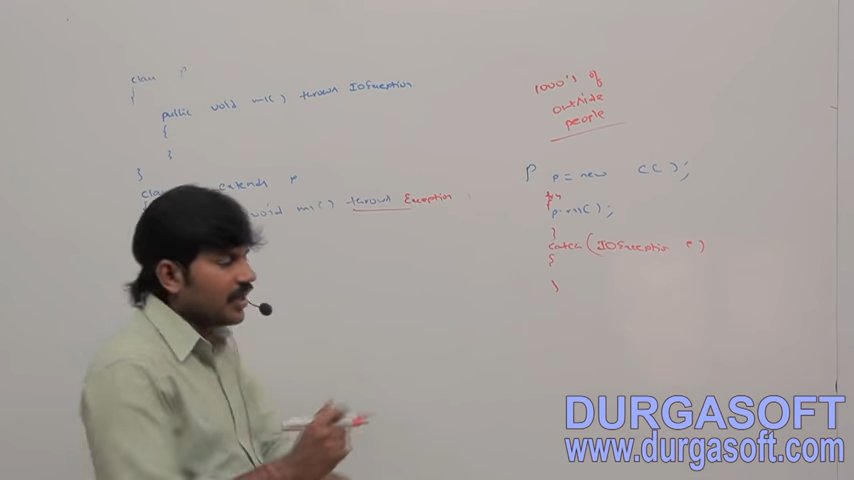 class P
{
public void m1() throws IOException
{
}
}
extends P
void m1() throws Exception
1000's of
outside
people
P p = new CC();
try
{
p.m1();
}
catch(IOException e)
{
}
DURGASOFT
www.durgasoft.com